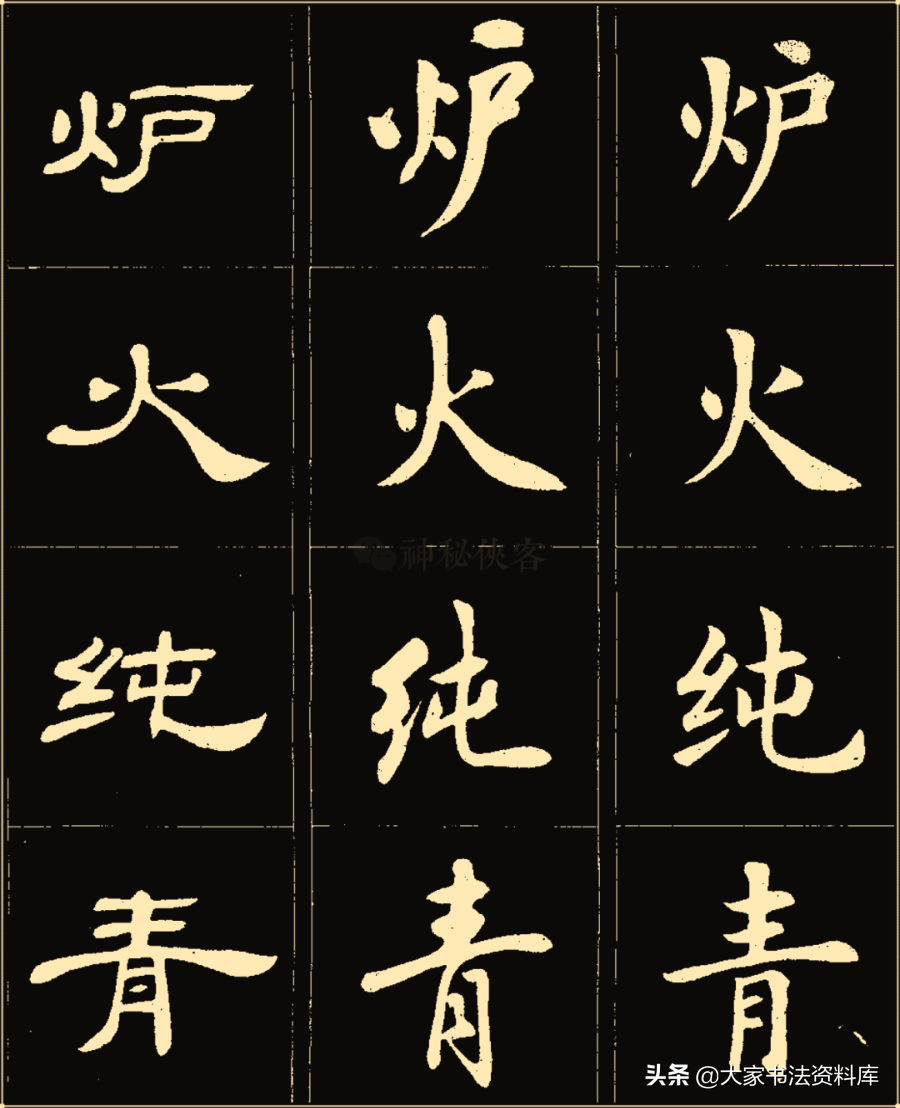 炉 炉 炉
火 火 火
神秘侠客
纯 纯 纯
青 青 青
头条 @大家书法资料库